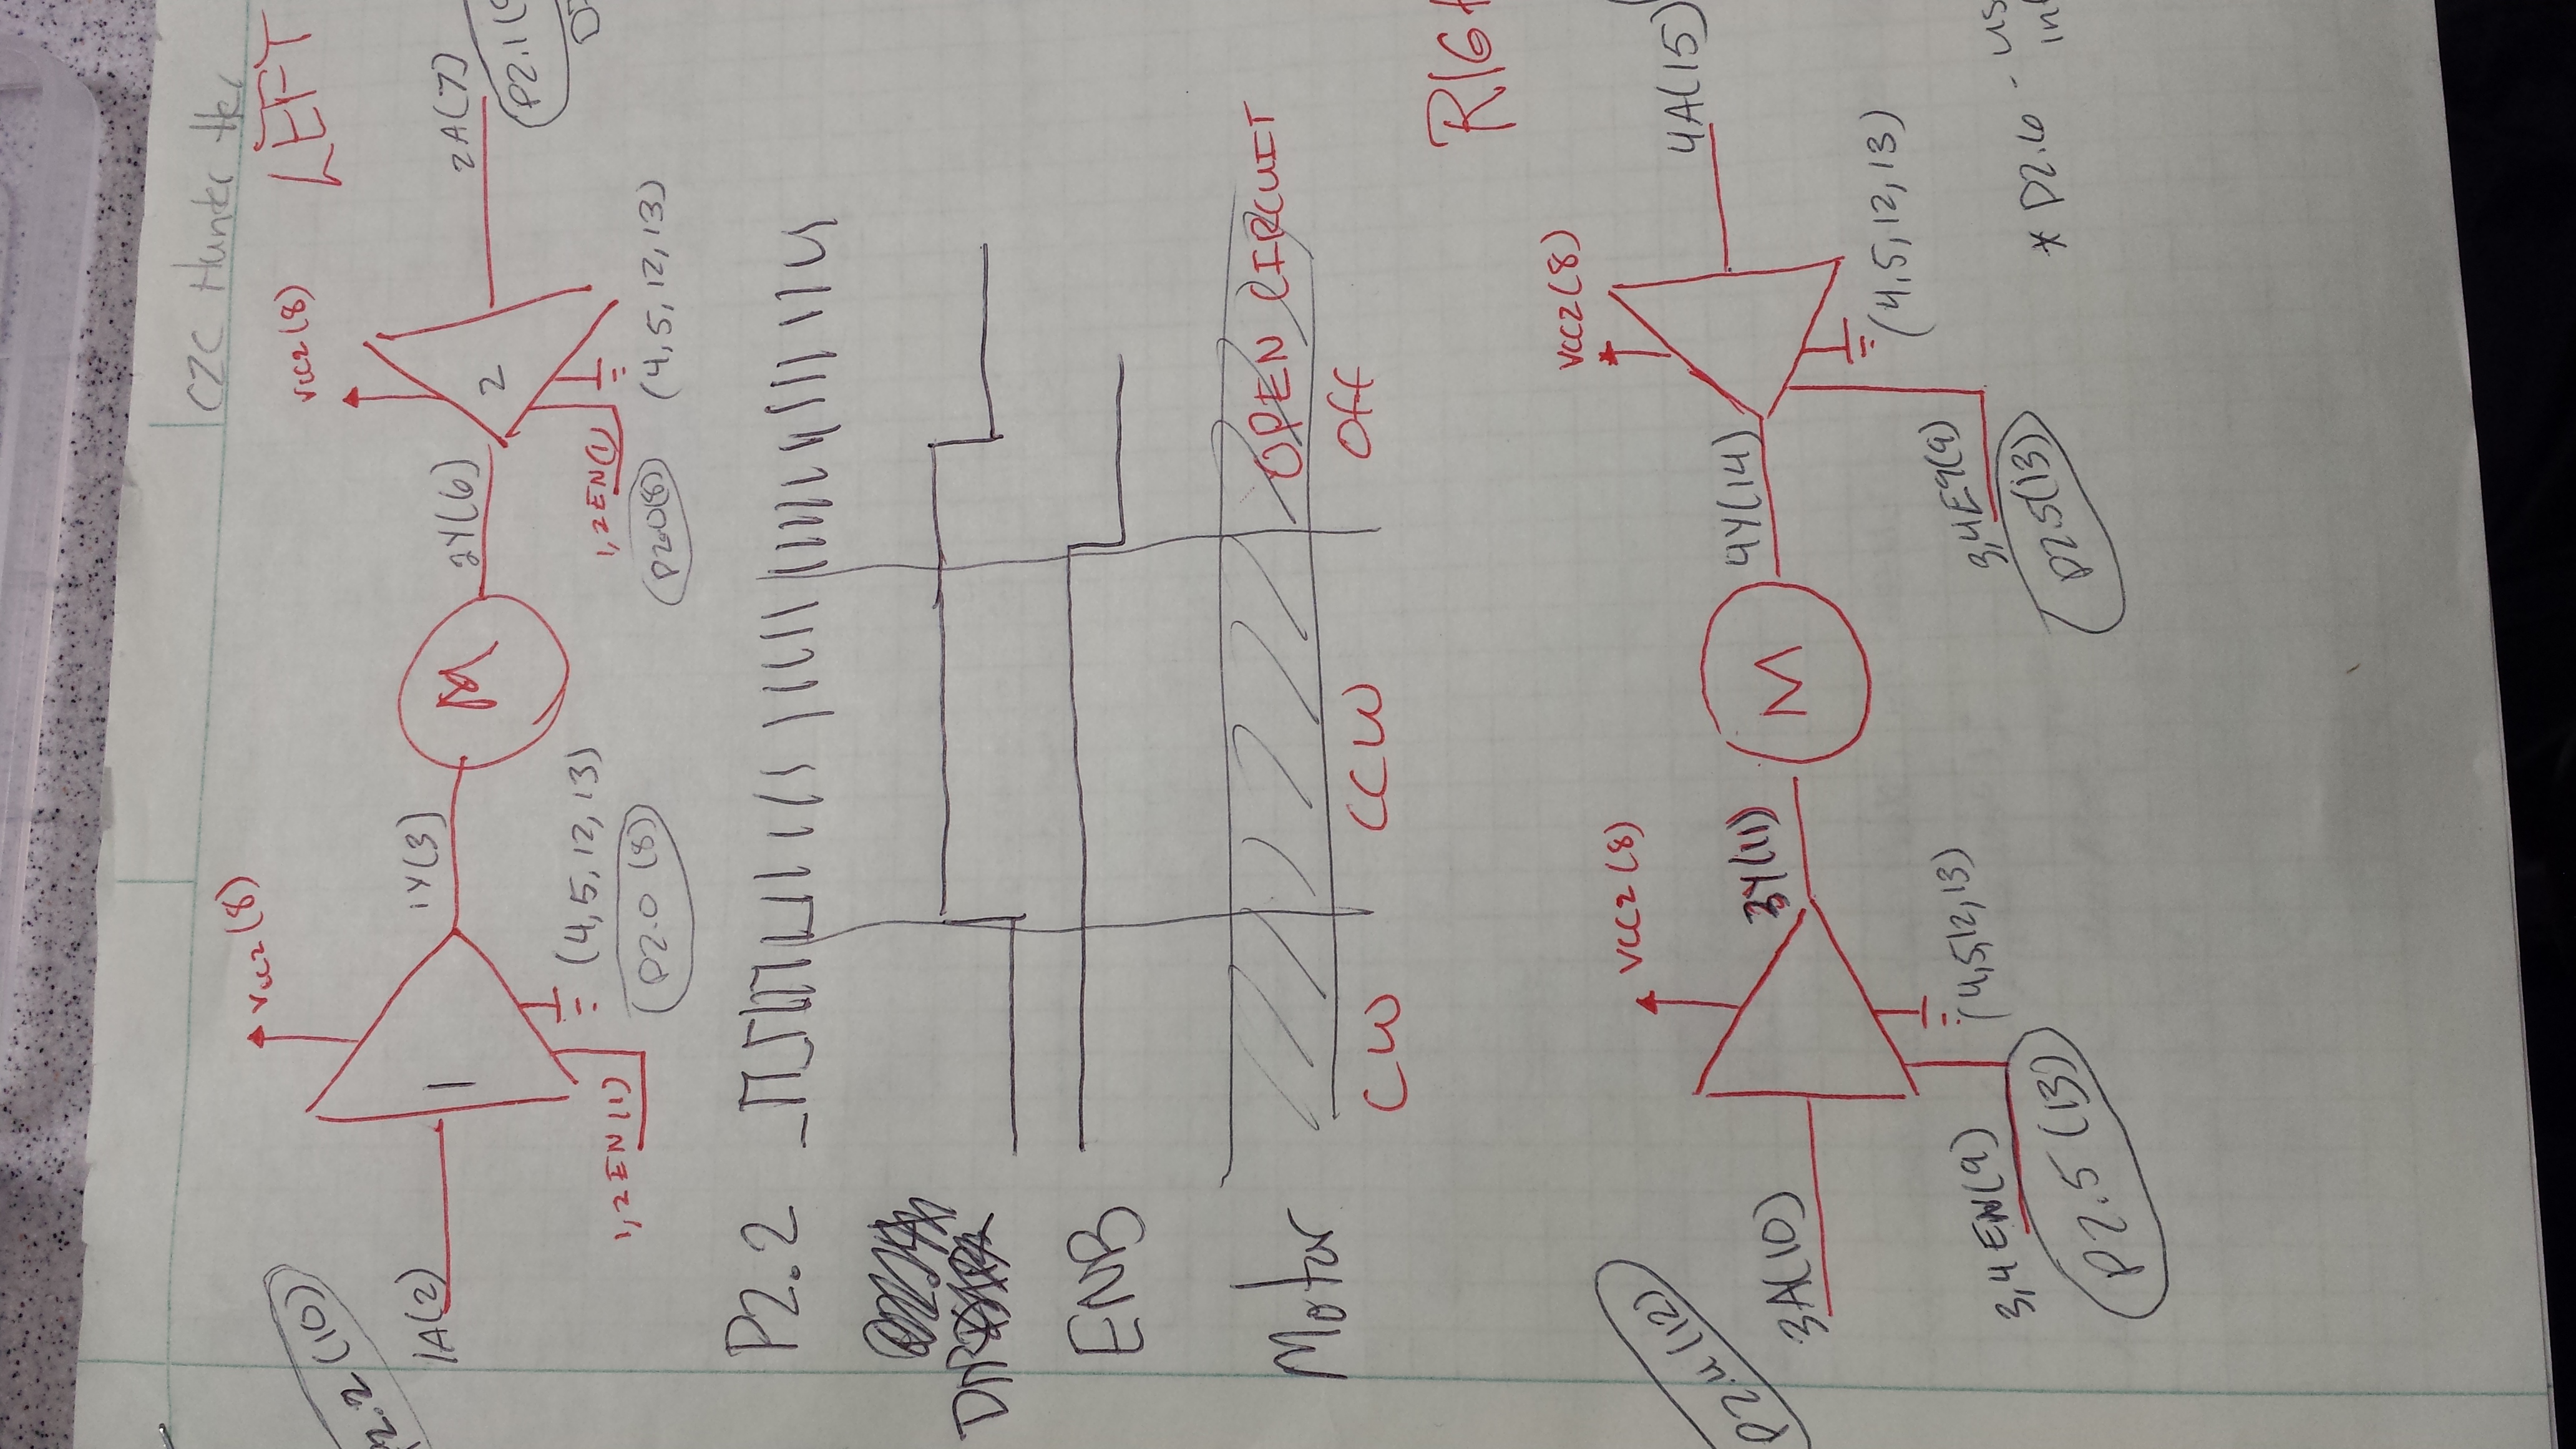 C2C Hunter
LEFT
VCC2(8)
VCC2(8)
P2.2 (10)
1A(2)
1
1Y(3)
M
2Y(6)
2
2A(7)
P2.1(
1,2EN(1)
(4,5,12,13)
P2.0 (8)
1,2EN(1)
(4,5,12,13)
P2.0(8)
P2.2
DIR
ENB
Motor
OPEN CIRCUIT
CW
CCW
Off
RIG
VCC2(8)
VCC2(8)
P2.4(12)
3A(10)
3Y(11)
M
4Y(14)
4A(15)
3,4EN(9)
(4,5,12,13)
P2.5 (13)
3,4EN(9)
(4,5,12,13)
P2.5(13)
* P2.6 - us
int